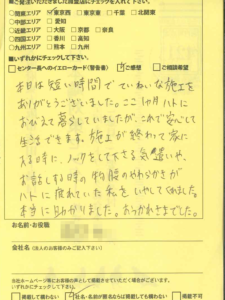 ■関東エリア ✓東京西 □東京東 □千葉 □北関東
□中部エリア □愛知
□近畿エリア □大阪 □京都 □奈良
□四国エリア □香川 □高知
□九州エリア □熊本 □九州
■いずれかにチェックして下さい
□センター長へのイエローカード(警告書) ✓ご感想 □ご相談希望
本日は短い時間でていねいな施工を
ありがとうございました。ここ1ヶ月ハトに
おびえて暮らしていましたが、これで安心して
生活できます。施工が終わって家に
入る時に、ノックをして下さる気遣いや、
お話しする時の物腰のやわらかさが
ハトに疲れていた私をいやしてくれました。
本当に助かりました。おつかれさまでした。
お名前・お役職
会社名 (法人のお客様のみご記入下さい)
当社ホームページ等にお客様の声として掲載させていただく場合がございます。
いずれかにチェックして下さい。
□掲載しても構わない ✓社名・名前が載るならば掲載しても構わない □掲載不可